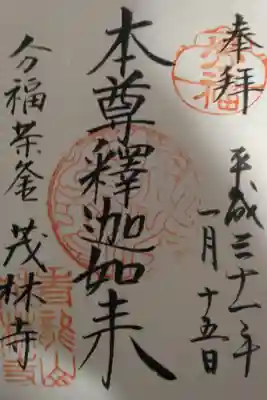 奉拝
平成三十一年
一月十五日
本尊釋迦如来
分福茶釜
茂林寺
分福